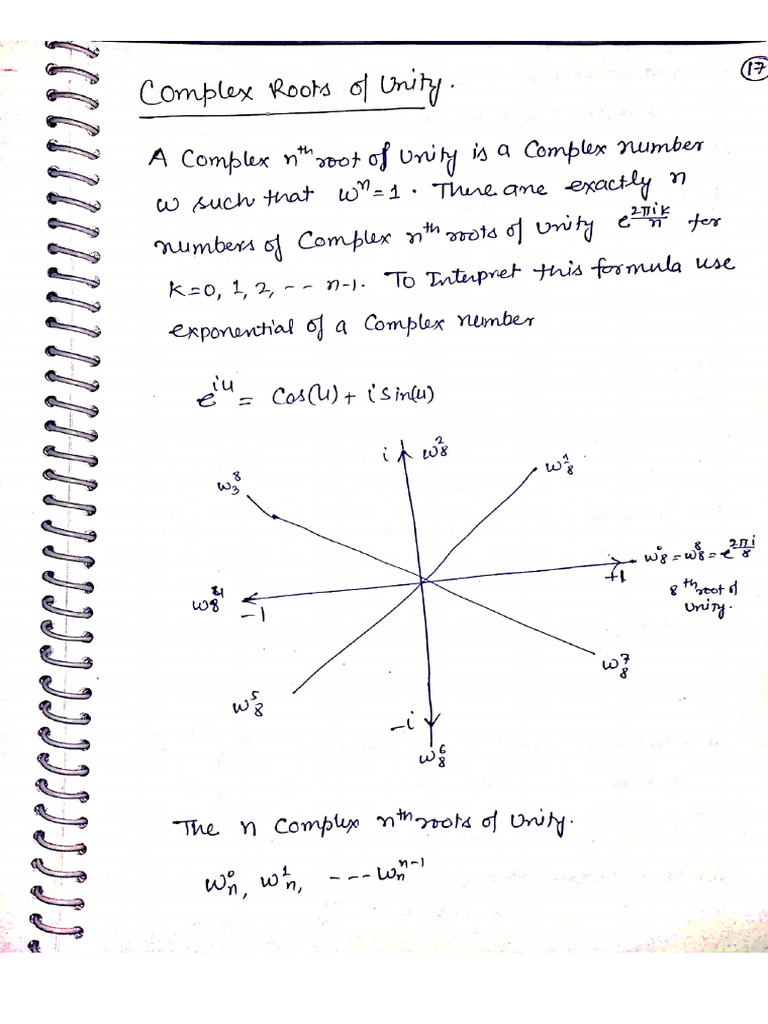 17
Complex Roots of Unity.
A Complex nᵗʰ root of Unity is a Complex number
ω such that ωⁿ = 1. There are exactly n
numbers of Complex nᵗʰ roots of Unity e^(2πik/n) for
K=0, 1, 2, -- n-1. To Interpret this formula use
exponential of a Complex number
e^(iu) = Cos(u) + i Sin(u)
i ω₈²
ω₈¹
ω₃⁸
ω₈⁰ = ω₈⁸ = e^(2πi/8)
+1
8ᵗʰ root of
Unity.
-1
ω₈⁷
ω₈⁵
-i
ω₈⁶
The n Complex nᵗʰ roots of Unity.
ωₙ⁰, ωₙ¹, --- ωₙⁿ⁻¹